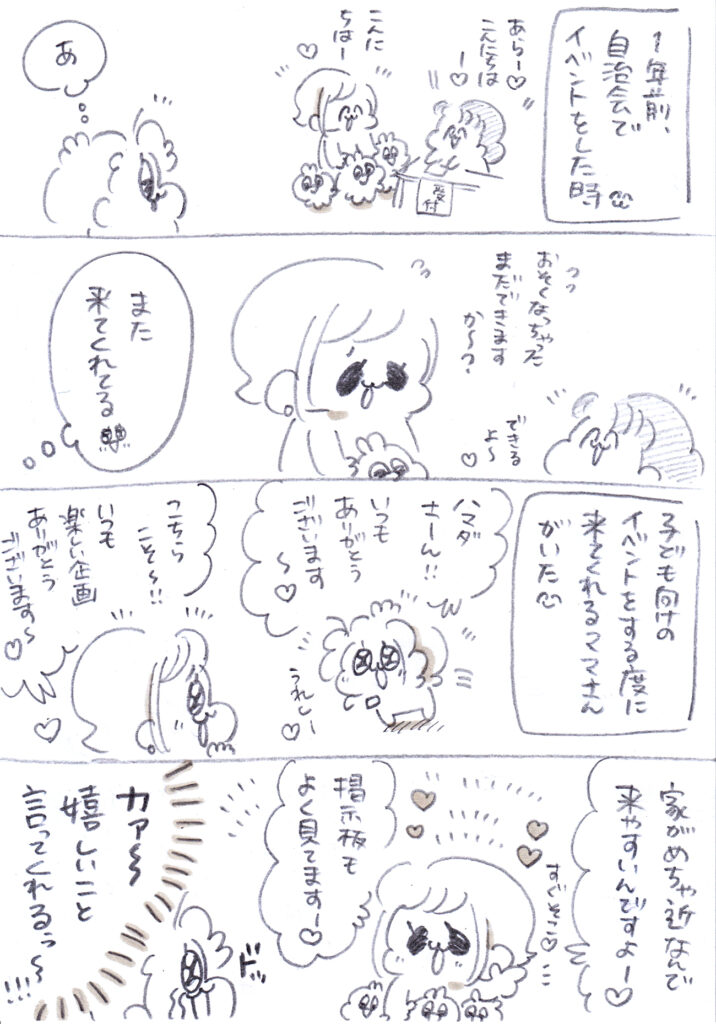 1年前、
自治会で
イベントをした時
あらー♡
こんにちは
ー♡
こんに
ちはー
♡
受付
あ
おそくなっちゃった
まだできます
か〜?
できる
よ〜
♡
また
来てくれてる
子ども向けの
イベントをする度に
来てくれるママさん
がいた
ハマダ
さーん!!
いつも
ありがとう
ございます
〜♡
うれしー
♡
こちら
こそ〜!!
いつも
楽しい企画
ありがとう
ございます〜
♡
家がめちゃ近なんで
来やすいんですよー♡
すぐそこ♡
掲示板も
よく見てますー♡
ドッ
カァ〜
嬉しいこと
言ってくれるぅ〜
!!!